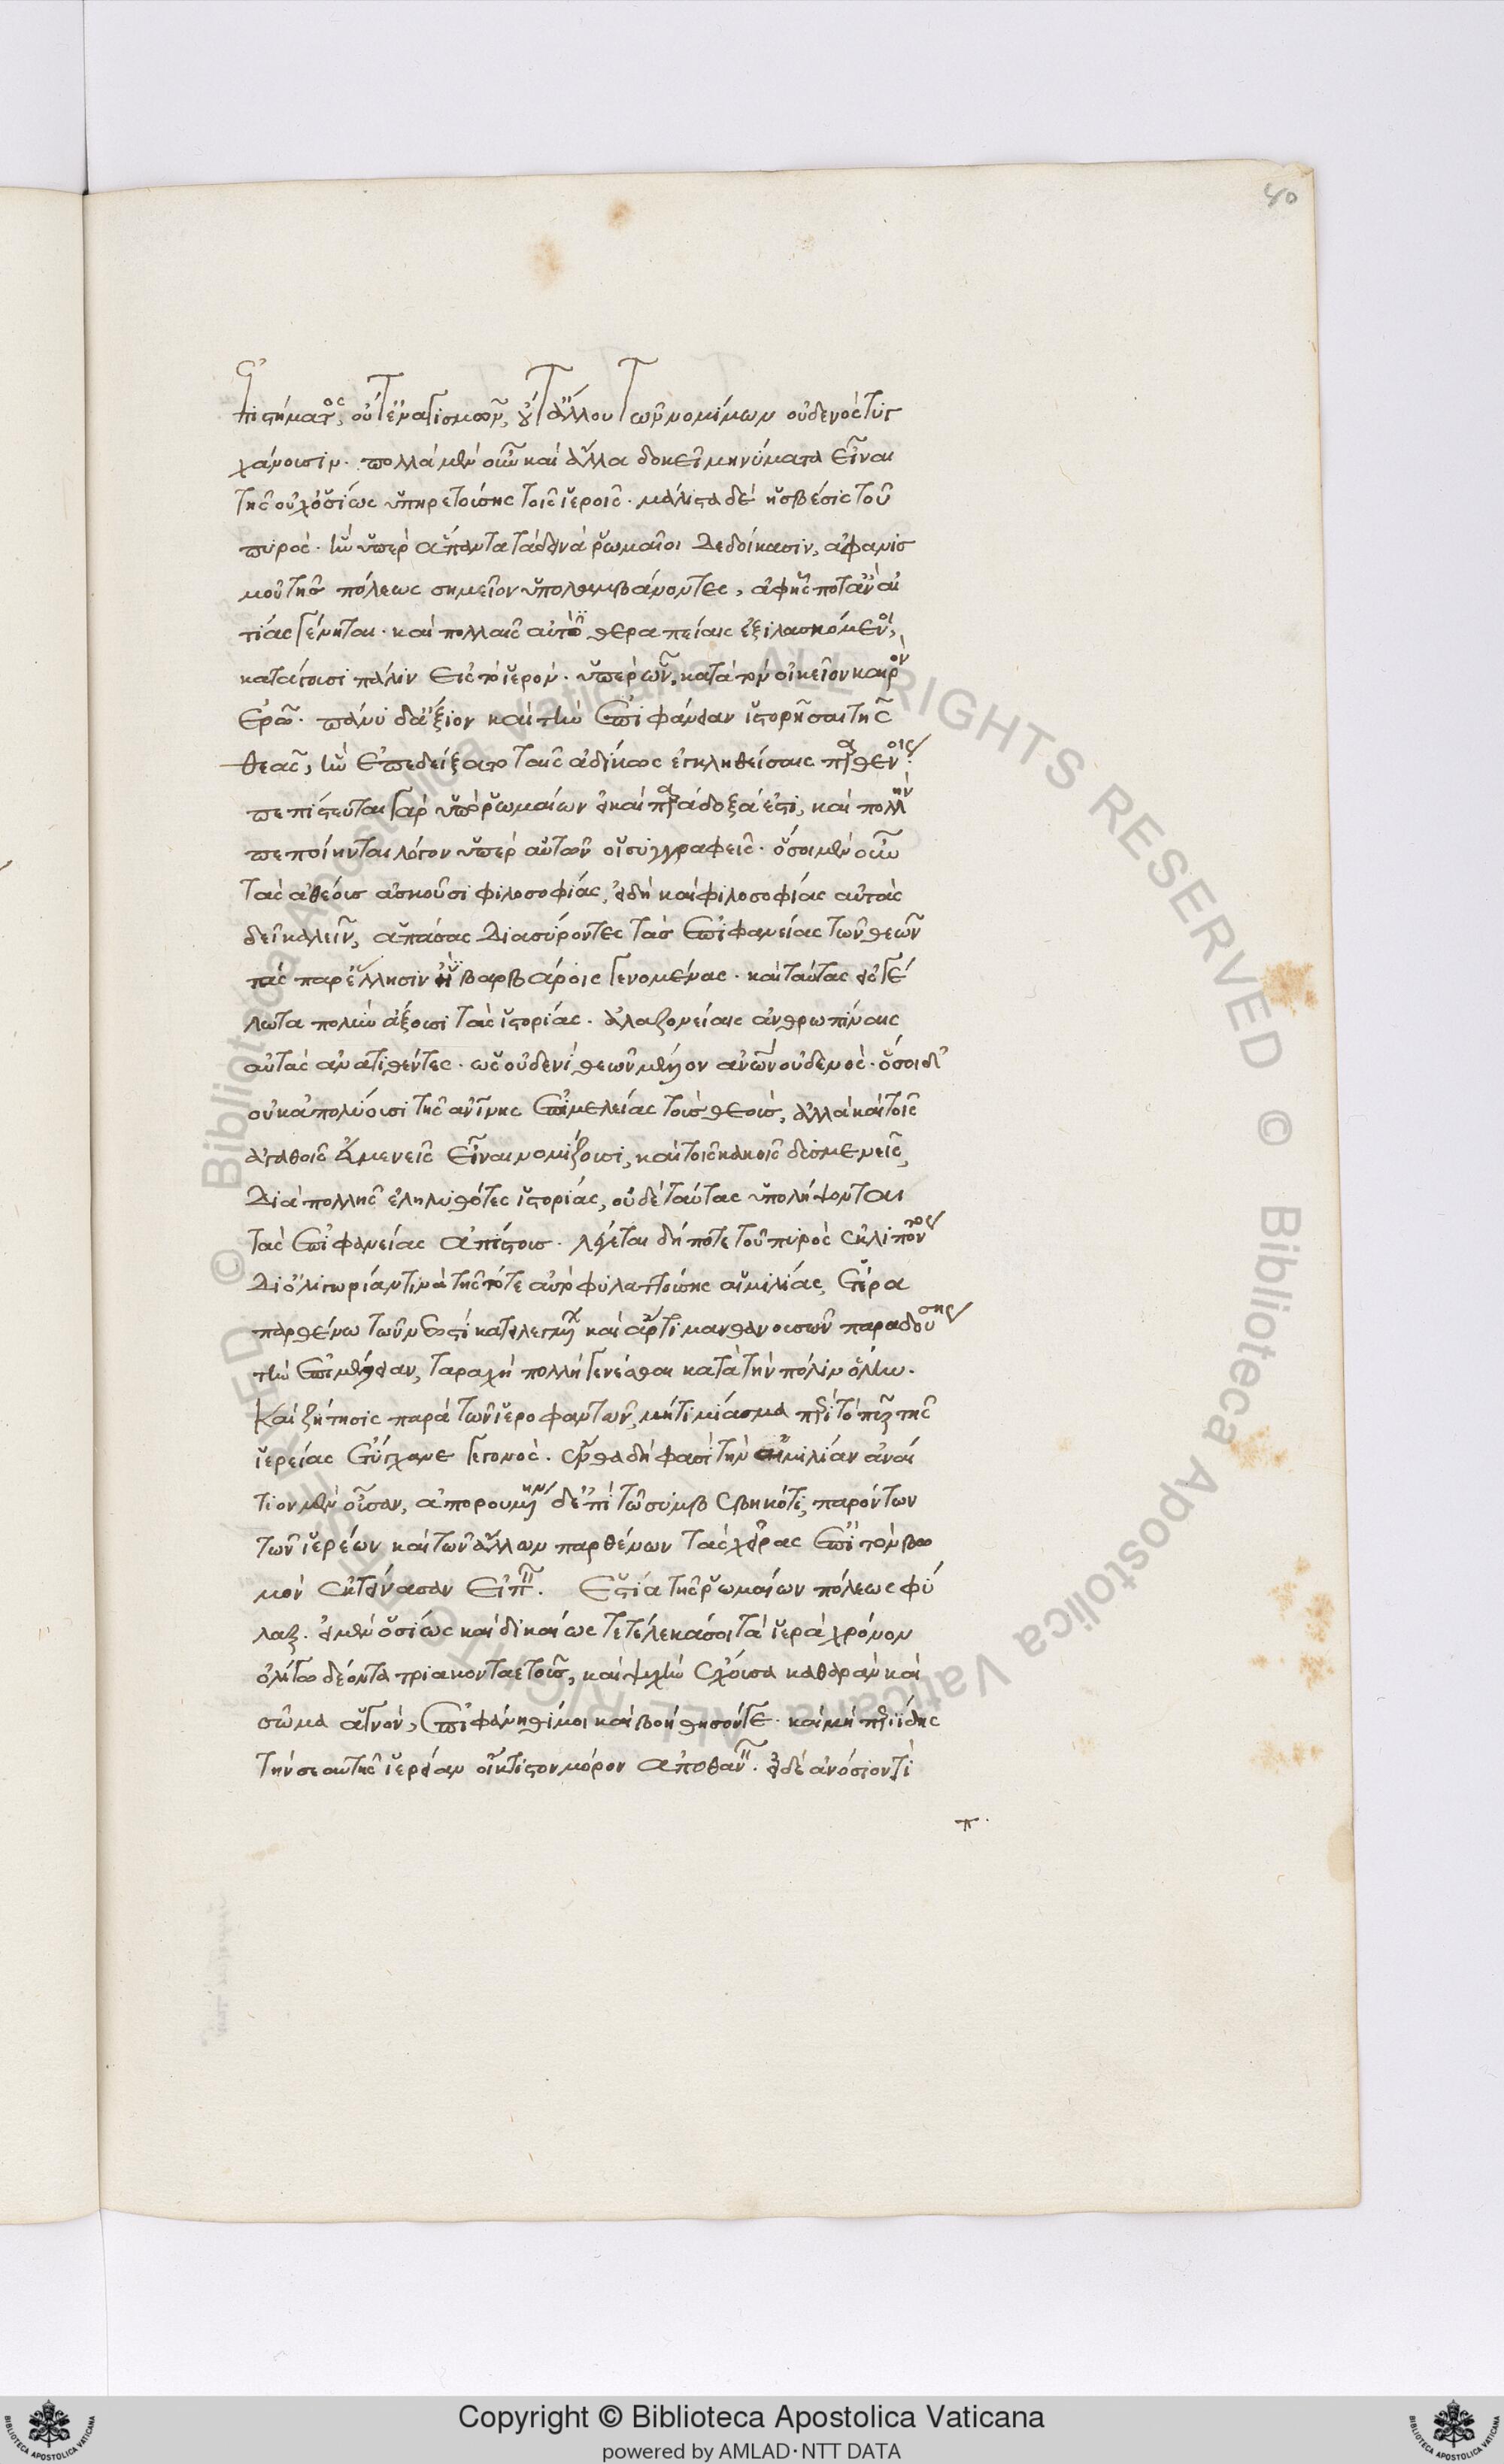 80
ἐπιστήματος, οὔτ' ἐναγισμῶν, οὔτ' ἄλλου τῶν νομίμων οὐδενὸς τυγ
χάνουσιν. πολλὰ μὲν οὖν καὶ ἄλλα δοκεῖ μηνύματα εἶναι
τῆς οὐχ ὁσίως ὑπηρετούσης τοῖς ἱεροῖς. μάλιστα δὲ ἡ σβέσις τοῦ
πυρὸς. ἣν ὑπὲρ ἅπαντα τὰ δεινὰ ῥωμαῖοι δεδοίκασιν, ἀφανισ
μοῦ τῆς πόλεως σημεῖον ὑπολαμβάνοντες, ἀφ' ἧς ποτ' ἂν αἰ
τίας γένηται. καὶ πολλαῖς αὐτὸ θεραπείαις ἐξιλασκόμενοι,
κατάγουσι πάλιν εἰς τὸ ἱερόν. ὑπὲρ ὧν, κατὰ τὸν οἰκεῖον καιρὸν
ἐρῶ. πάνυ δ' ἄξιον καὶ τὴν ἐπιφάνειαν ἱστορῆσαι τῆς
θεᾶς, ἣν ἐπεδείξατο ταῖς ἀδίκως ἐγκληθείσαις παρθένοις.
πεπίστευται γὰρ ὑπὸ ῥωμαίων εἰ καὶ παράδοξά ἐστι, καὶ πολλὴν
πεποίηνται λόγον ὑπὲρ αὐτῶν οἱ συγγραφεῖς. ὅσοι μὲν οὖν
τὰς ἀθέους ἀσκοῦσι φιλοσοφίας, εἰ δὴ καὶ φιλοσοφίας αὐτὰς
δεῖ καλεῖν, ἁπάσας διασύροντες τὰς ἐπιφανείας τῶν θεῶν
τὰς παρ' ἕλλησιν ἢ βαρβάροις γενομένας. καὶ ταύτας εἰς γέ
λωτα πολὺν ἄξουσι τὰς ἱστορίας. ἀλαζονείαις ἀνθρωπίναις
αὐτὰς ἀνατιθέντες. ὡς οὐδενὶ θεῶν μέλον ἀνῶν οὐδενὸς. ὅσοι δ'
οὐκ ἀπολύουσι τῆς ἀνίνης ἐπιμελείας τοὺς θεοὺς, ἀλλὰ καὶ τοῖς
ἀγαθοῖς εὐμενεῖς εἶναι νομίζουσι, καὶ τοῖς κακοῖς δυσμενεῖς,
διὰ πολλῆς ἐληλυθότες ἱστορίας, οὐδὲ ταύτας ὑπολήψονται
τὰς ἐπιφανείας ἀπίστους. λέγεται δή ποτε τοῦ πυρὸς ἐκλιπόντος
δι' ὀλιγωρίαν τινὰ τῆς τότε αὐτὸ φυλαττούσης αἰμιλίας, ἑτέρα
παρθένω τῶν νεωστὶ κατειλεγμένων καὶ ἄρτι μανθανουσῶν παραδούσης
τὴν ἐπιμέλειαν, ταραχὴ πολλὴ γενέσθαι κατὰ τὴν πόλιν ὅλην.
καὶ ζήτησις παρὰ τῶν ἱεροφαντῶν, μή τι μίασμα περὶ τὸ πῦρ τῆς
ἱερείας ἐτύγχανε γεγονὸς. ἔνθα δή φασὶ τὴν αἰμιλίαν ἀναί
τιον μὲν οὖσαν, ἀπορουμένην δ' ἐπὶ τῶ συμβεβηκότι, παρόντων
τῶν ἱερέων καὶ τῶν ἄλλων παρθένων τὰς χεῖρας ἐπὶ τὸν βω
μὸν ἐκτείνασαν εἰπεῖν. ἑστία τῆς ῥωμαίων πόλεως φύ
λαξ. εἰ μὲν ὁσίως καὶ δικαίως τετέλεκά σοι τὰ ἱερὰ χρόνον
ὀλίγω δέοντα τριακονταετοῦς, καὶ ψυχὴν ἔχουσα καθαρὰν καὶ
σῶμα ἁγνὸν, ἐπιφάνηθί μοι καὶ βοήθησόν τε. καὶ μὴ περιίδης
τὴν σεαυτῆς ἱέρειαν οἴκτιστον μόρον ἀποθανεῖν. εἰ δὲ ἀνόσιόν τι
π.